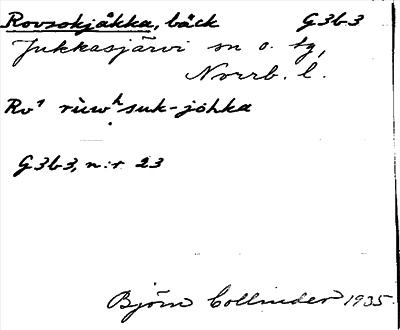 Rovsokjåkka, bäck G3b3
Jukkasjärvi sn o. tg,
Norrb. l.
Rv¹ rùwʰsuk-jòhka
G3b3, n:r 23
Björn Collinder 1935.